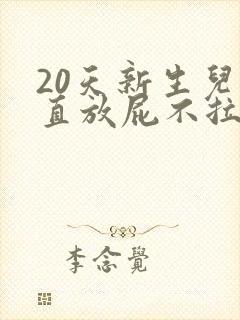 20天新生兒
直放屁不拉
李念覺